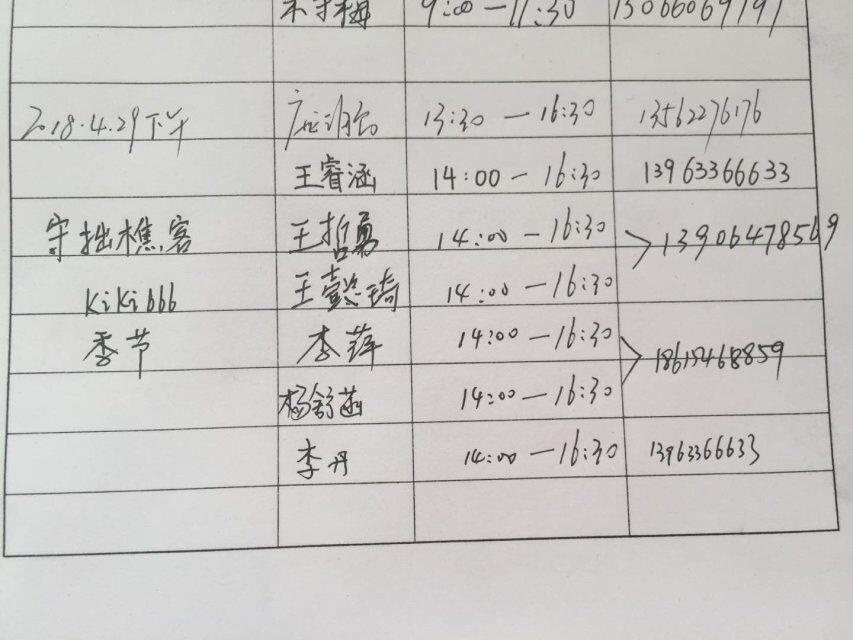 9:00—11:30
2018.4.29下午 13:30—16:30 13562276176
王睿涵 14:00—16:30 13963366633
守拙樵客 王哲勇 14:00—16:30 13906478569
kiki666 王懿琦 14:00—16:30
季节 李萍 14:00—16:30
杨舒菡 14:00—16:30
李丹 14:00—16:30 13963366633